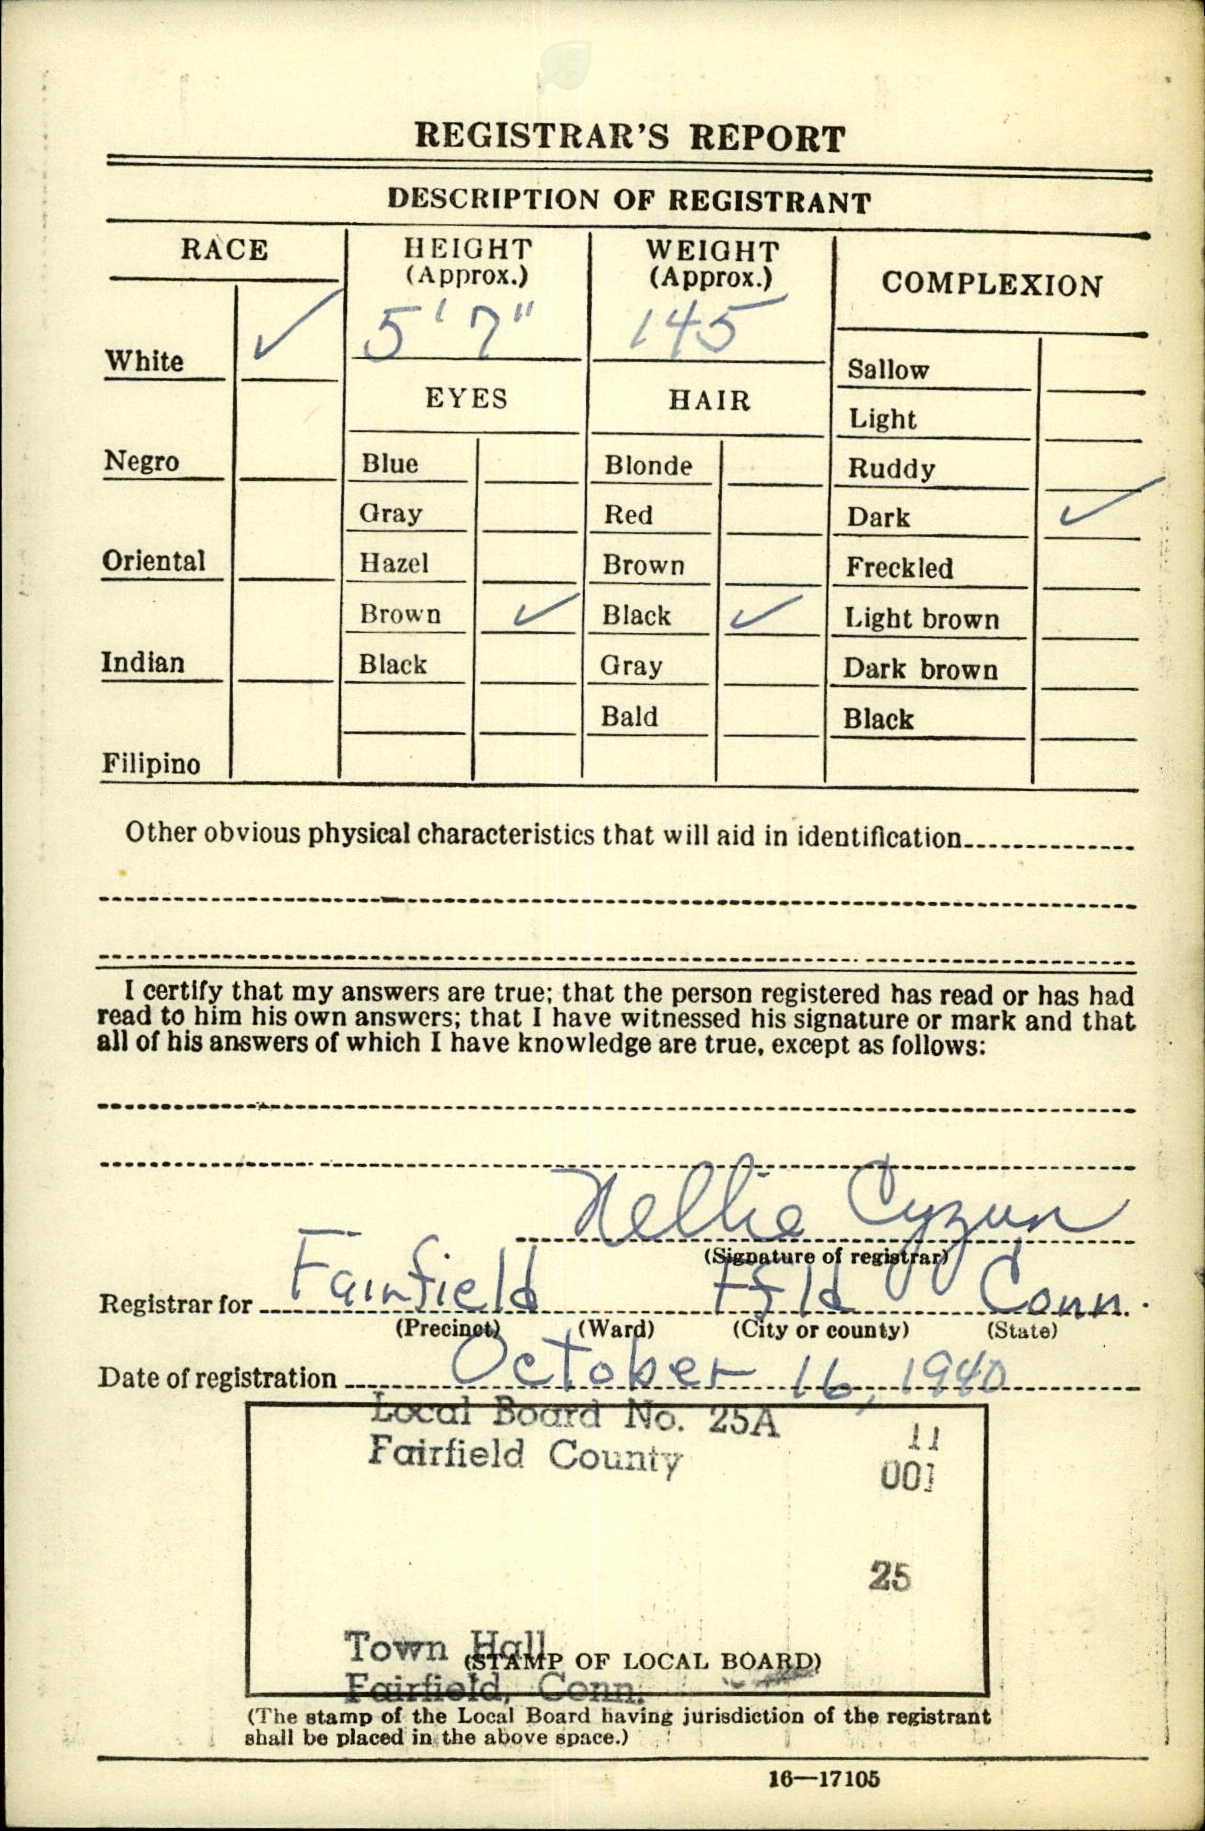 REGISTRAR'S REPORT
DESCRIPTION OF REGISTRANT
RACE
HEIGHT
(Approx.)
WEIGHT
(Approx.)
COMPLEXION
5' 7"
145
White ✓
Sallow
EYES
HAIR
Light
Negro
Blue
Blonde
Ruddy
Gray
Red
Dark ✓
Oriental
Hazel
Brown
Freckled
Brown ✓
Black ✓
Light brown
Indian
Black
Gray
Dark brown
Bald
Black
Filipino
Other obvious physical characteristics that will aid in identification
I certify that my answers are true; that the person registered has read or has had
read to him his own answers; that I have witnessed his signature or mark and that
all of his answers of which I have knowledge are true, except as follows:
Nellie Cyzun
(Signature of registrar)
Registrar for Fairfield Ffld Conn.
(Precinct) (Ward) (City or county) (State)
Date of registration October 16, 1940
Local Board No. 25A 11
Fairfield County 001
25
Town Hall
(STAMP OF LOCAL BOARD)
Fairfield, Conn.
(The stamp of the Local Board having jurisdiction of the registrant
shall be placed in the above space.)
16—17105